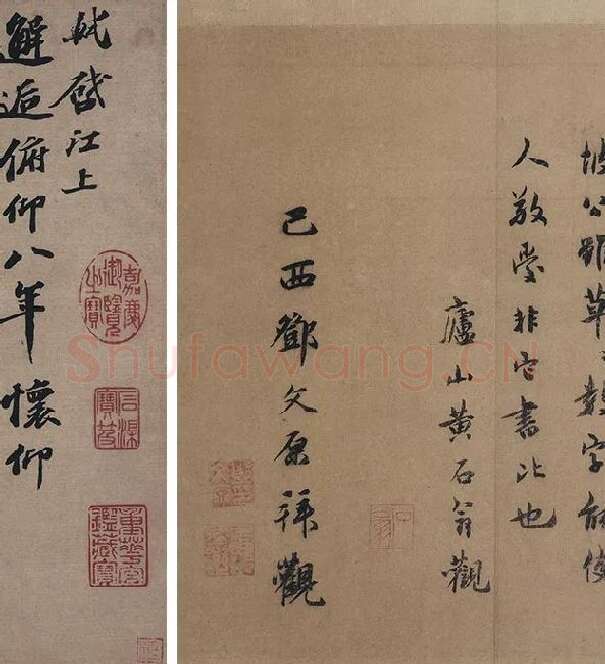 軾啓江上
邂逅俯仰八年懷仰
嘉慶御覽之寶
石渠寶笈
重華宮鑑藏寶
坡公雖草々數字能使
人敬愛非它書比也
廬山黃石翁觀
己酉鄧文原拜觀
Shufawang.CN